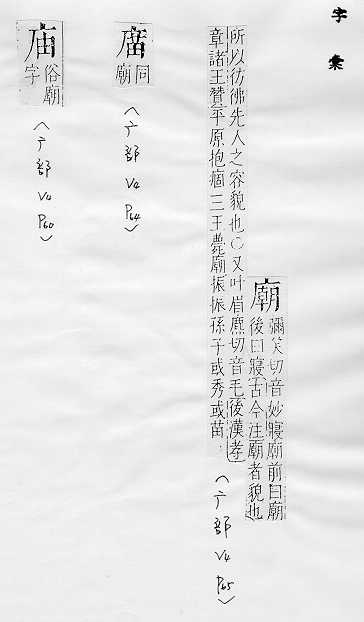 字彙
廟 彌笑切音妙寢廟前曰廟
後曰寢古今注廟者貌也
所以彷彿先人之容貌也○又叶眉鹿切音毛後漢孝
章諸王贊平原抱痼三王薨廟振振孫子或秀或苗
(广部 V4 P65)
庿 同
廟
(广部 V4 P64)
庙 俗廟
字
(广部 V4 P60)